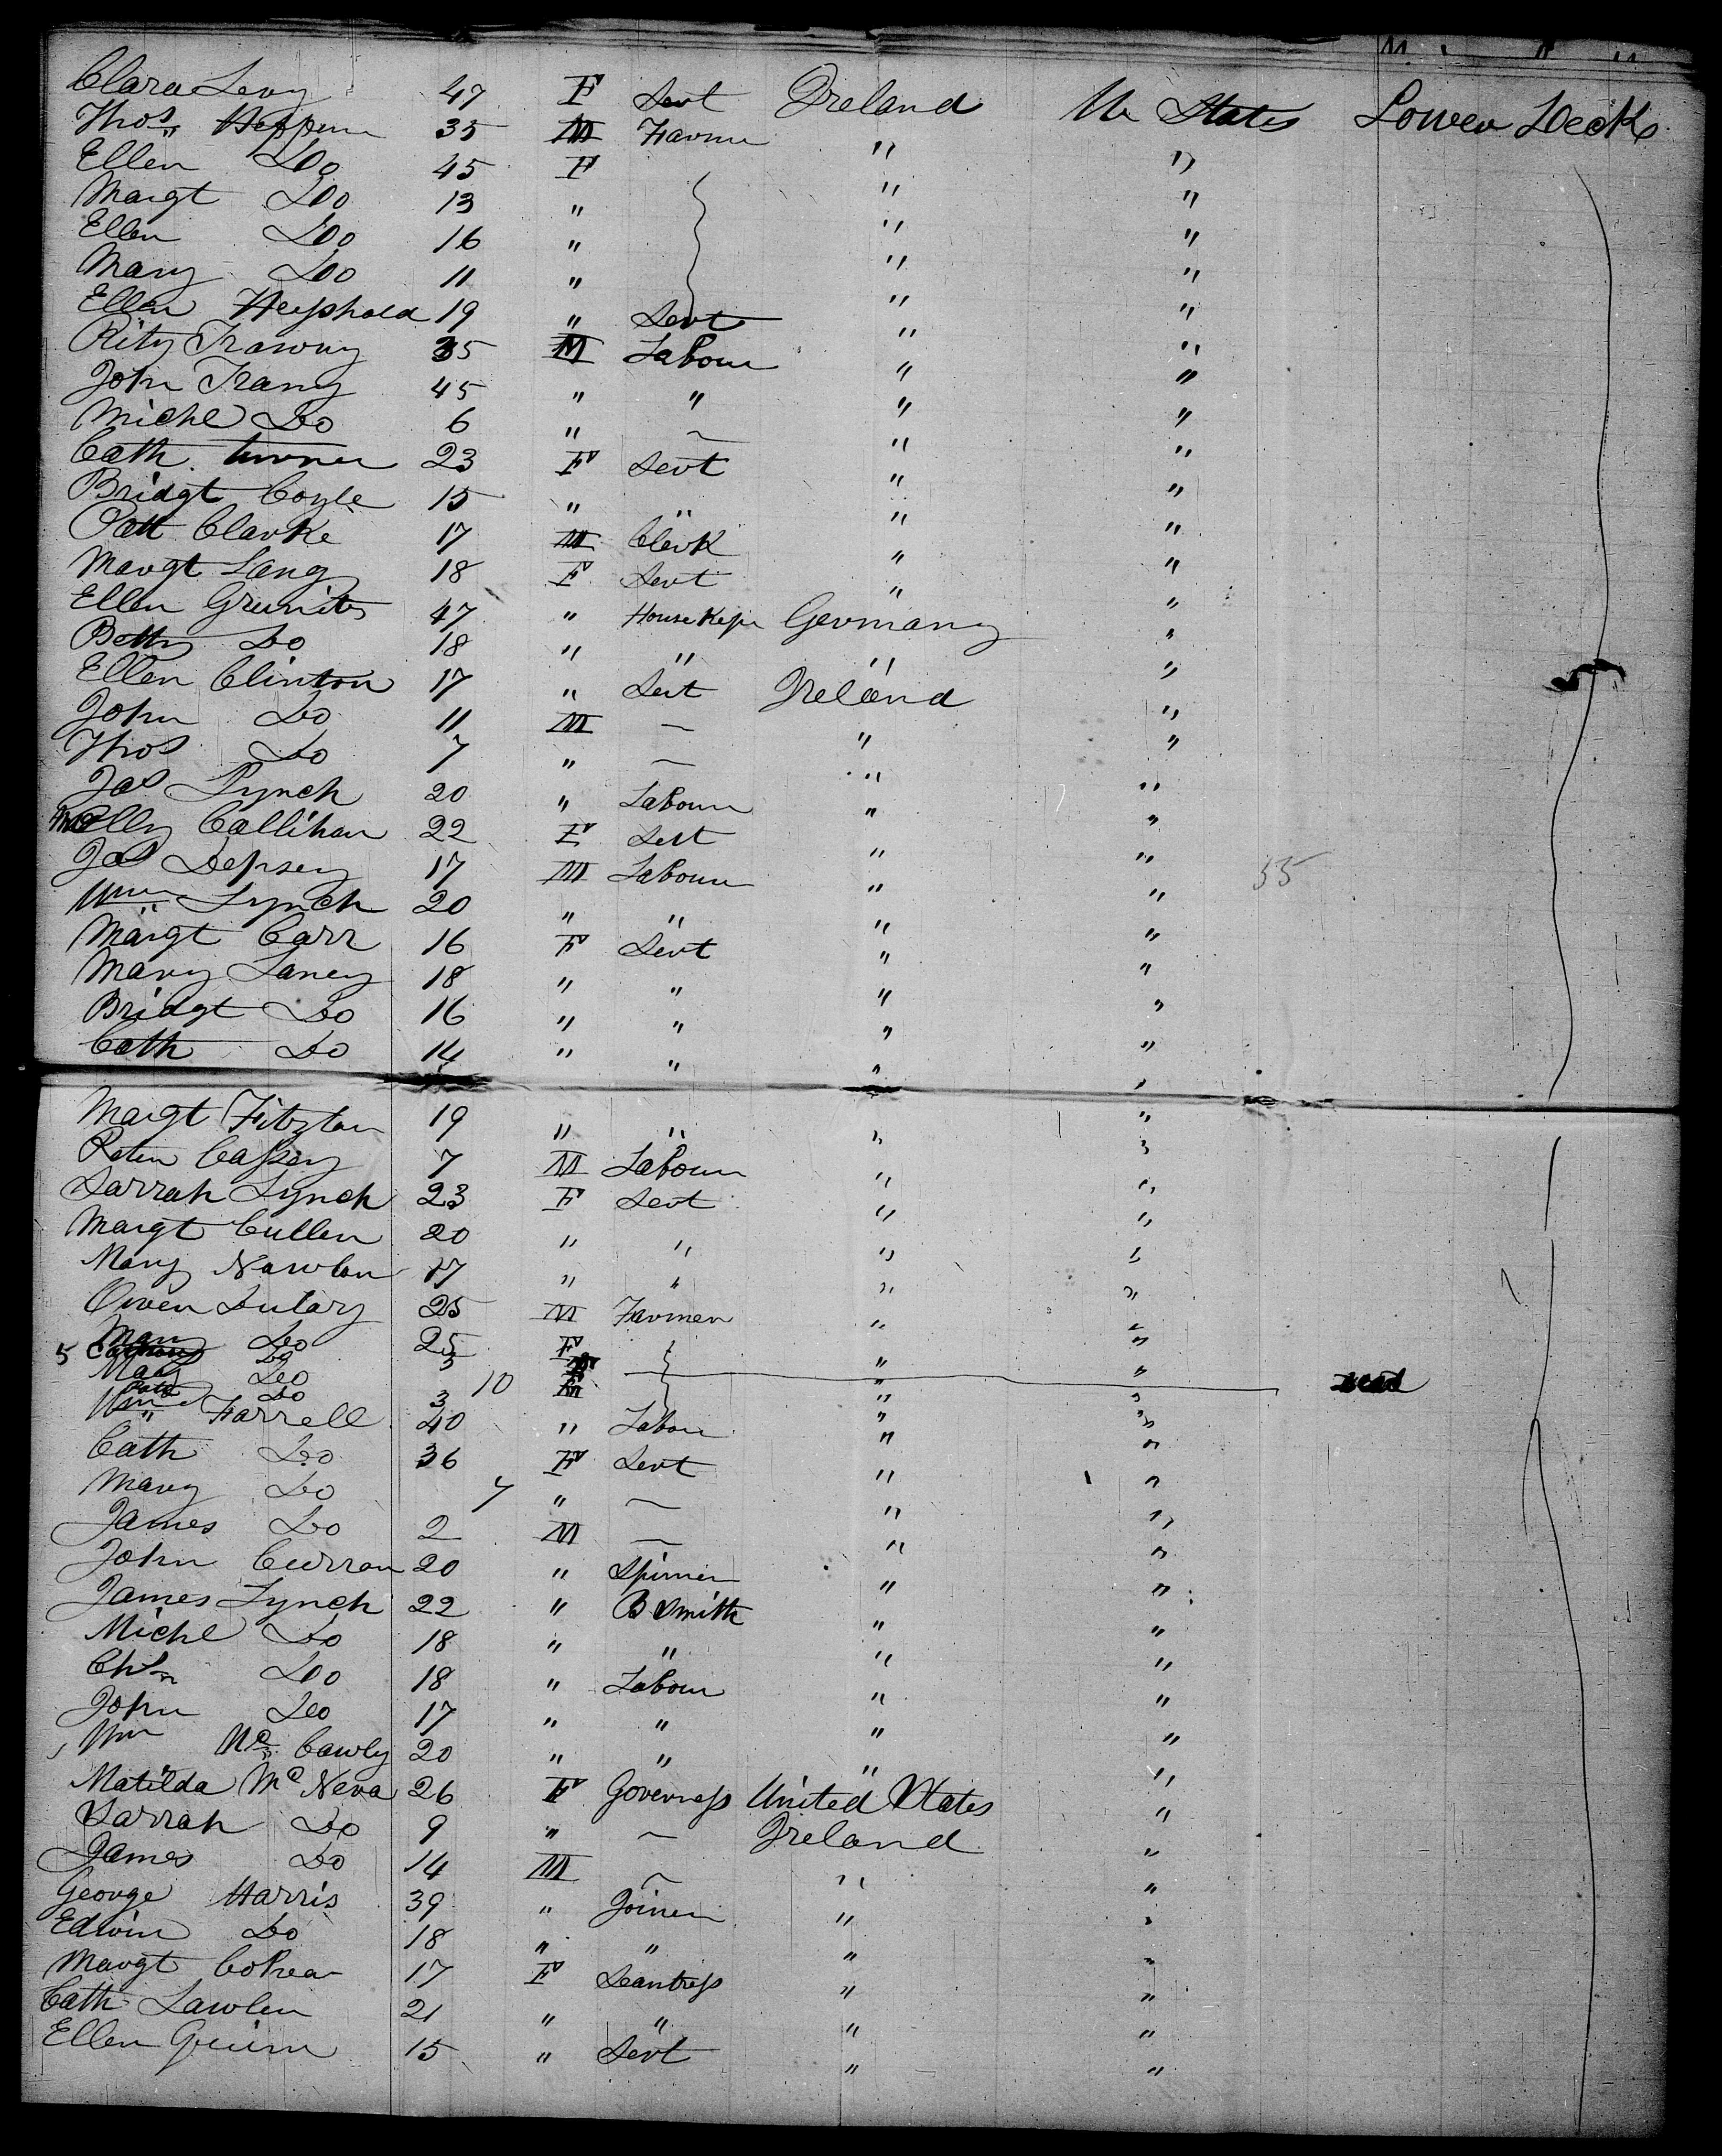 Clara Levy 47 F Servt Ireland Un States Lower Deck
Thos 35 M Farmer " "
Ellen Do 45 F " "
Margt Do 13 " " "
Ellen Do 16 " " "
Mary Do 11 " " "
Ellen 19 " Servt " "
35 M Labour " "
John 45 " " " "
Michl Do 6 " ~ " "
Cath 23 F Servt " "
Bridgt Coyle 15 " " " "
Patt Clarke 17 M Clerk " "
Margt Lang 18 F Servt " "
Ellen 47 " House Kepr Germany "
Betty Do 18 " " " "
Ellen Clinton 17 " Servt Ireland "
John Do 11 M ~ " "
Thos Do 7 " ~ " "
Jas Lynch 20 " Labour " "
Elly Callihan 22 F Servt " "
Jas Depsey 17 M Labour " " 55
Wm Lynch 20 " " " "
Margt Carr 16 F Servt " "
Mary Laney 18 " " " "
Bridgt Do 16 " " " "
Cath Do 14 " " " "
Margt 19 " " " "
Peter Cassey 7 M Labour " "
Sarrah Lynch 23 F Servt " "
Margt Cullen 20 " " " "
Mary Nowlan 17 " " " "
Owen 25 M Farmer " "
Mary Do 25 F " "
5 Do 5 " "
Mary Do 10 " "
Do 3 " "
Wm Farrell 40 " Labour " "
Cath Do 36 F Servt " "
Mary Do 7 " ~ " "
James Do 2 M ~ " "
John Curran 20 " Spinner " "
James Lynch 22 " B Smith " "
Michl Do 18 " " " "
Do 18 " Labour " "
John Do 17 " " " "
Wm Mc Cawly 20 " " " "
Matilda Mc Neva 26 F Governess United States "
Sarrah Do 9 " ~ Ireland "
James Do 14 M ~ " "
George Harris 39 " Joiner " "
Edwin Do 18 " " " "
Margt 17 F " "
Cath Lawlen 21 " " " "
Ellen 15 " Servt " "